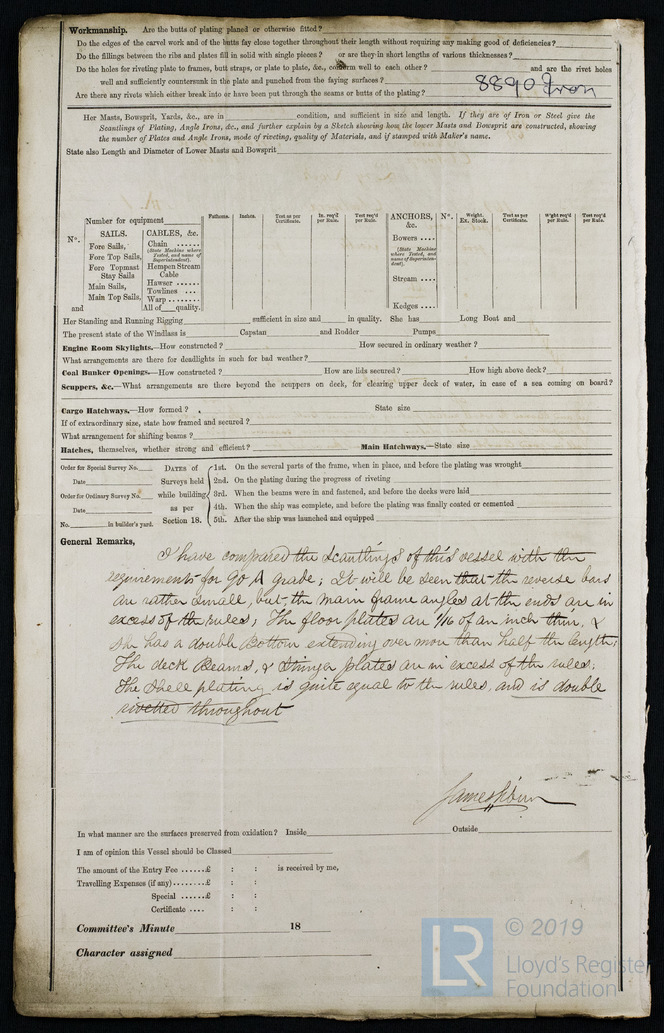 Workmanship. Are the butts of plating planed or otherwise fitted?
Do the edges of the carvel work and of the butts fay close together throughout their length without requiring any making good of deficiencies?
Do the fillings between the ribs and plates fill in solid with single pieces? or are they in short lengths of various thicknesses?
Do the holes for riveting plate to frames, butt straps, or plate to plate, &c., conform well to each other? and are the rivet holes
well and sufficiently countersunk in the plate and punched from the faying surfaces?
8890 Iron
Are there any rivets which either break into or have been put through the seams or butts of the plating?
Her Masts, Bowsprit, Yards, &c., are in condition, and sufficient in size and length. If they are of Iron or Steel give the
Scantlings of Plating, Angle Irons, &c., and further explain by a Sketch showing how the lower Masts and Bowsprit are constructed, showing
the number of Plates and Angle Irons, mode of riveting, quality of Materials, and if stamped with Maker's name.
State also Length and Diameter of Lower Masts and Bowsprit
Number for equipment
Fathoms. Inches. Test as per Certificate. In. req'd per Rule. Test req'd per Rule.
ANCHORS, &c. No. Weight. Ex. Stock. Test as per Certificate. W'ght req'd per Rule. Test req'd per Rule.
No. SAILS. CABLES, &c.
Fore Sails, Chain ...... Bowers ....
(State Machine where Tested, and name of Superintendent). (State Machine where Tested, and name of Superintendent).
Fore Top Sails,
Fore Topmast Stay Sails Hempen Stream Cable Stream ....
Main Sails, Hawser ......
Towlines ...
Main Top Sails, Warp ........
and All of quality. Kedges ....
Her Standing and Running Rigging sufficient in size and in quality. She has Long Boat and
The present state of the Windlass is Capstan and Rudder Pumps
Engine Room Skylights.—How constructed? How secured in ordinary weather?
What arrangements are there for deadlights in such for bad weather?
Coal Bunker Openings.—How constructed? How are lids secured? How high above deck?
Scuppers, &c.—What arrangements are there beyond the scuppers on deck, for clearing upper deck of water, in case of a sea coming on board?
Cargo Hatchways.—How formed? State size
If of extraordinary size, state how framed and secured?
What arrangement for shifting beams?
Hatches, themselves, whether strong and efficient? Main Hatchways.—State size
Order for Special Survey No. DATES of 1st. On the several parts of the frame, when in place, and before the plating was wrought
Date Surveys held 2nd. On the plating during the progress of riveting
Order for Ordinary Survey No. while building 3rd. When the beams were in and fastened, and before the decks were laid
Date as per 4th. When the ship was complete, and before the plating was finally coated or cemented
No. in builder's yard. Section 18. 5th. After the ship was launched and equipped
General Remarks,
I have compared the Scantlings of this vessel with the
requirements for 90 A grade; It will be seen that the reverse bars
are rather small, but, the main frame angles at the ends are in
excess of the rules; The floor plates are 9/16 of an inch thin, &
she has a double Bottom extending over more than half the length;
The deck Beams, & Stringer plates are in excess of the rules;
The Shell plating is quite equal to the rules, and is double
rivetted throughout
In what manner are the surfaces preserved from oxidation? Inside Outside
I am of opinion this Vessel should be Classed
The amount of the Entry Fee ......£ : : is received by me,
Travelling Expenses (if any)........£ : :
Special ......£ : :
Certificate .... : :
Committee's Minute 18
Character assigned
LR © 2019
Lloyd's Register
Foundation